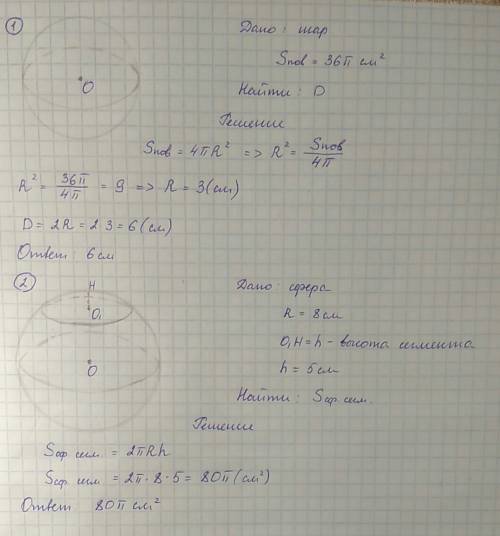 1
Дано: шар
Sпов = 36π см²
О
Найти: D
Решение
Sпов = 4πR² => R² = Sпов / 4π
R² = 36π / 4π = 9 => R = 3 (см)
D = 2R = 2·3 = 6 (см)
Ответ: 6 см
2
H
O₁
O
Дано: сфера
R = 8 см
O₁H = h - высота сегмента
h = 5 см
Найти: Sсф. сегм.
Решение
Sсф. сегм. = 2πRh
Sсф. сегм. = 2π·8·5 = 80π (см²)
Ответ 80π см²